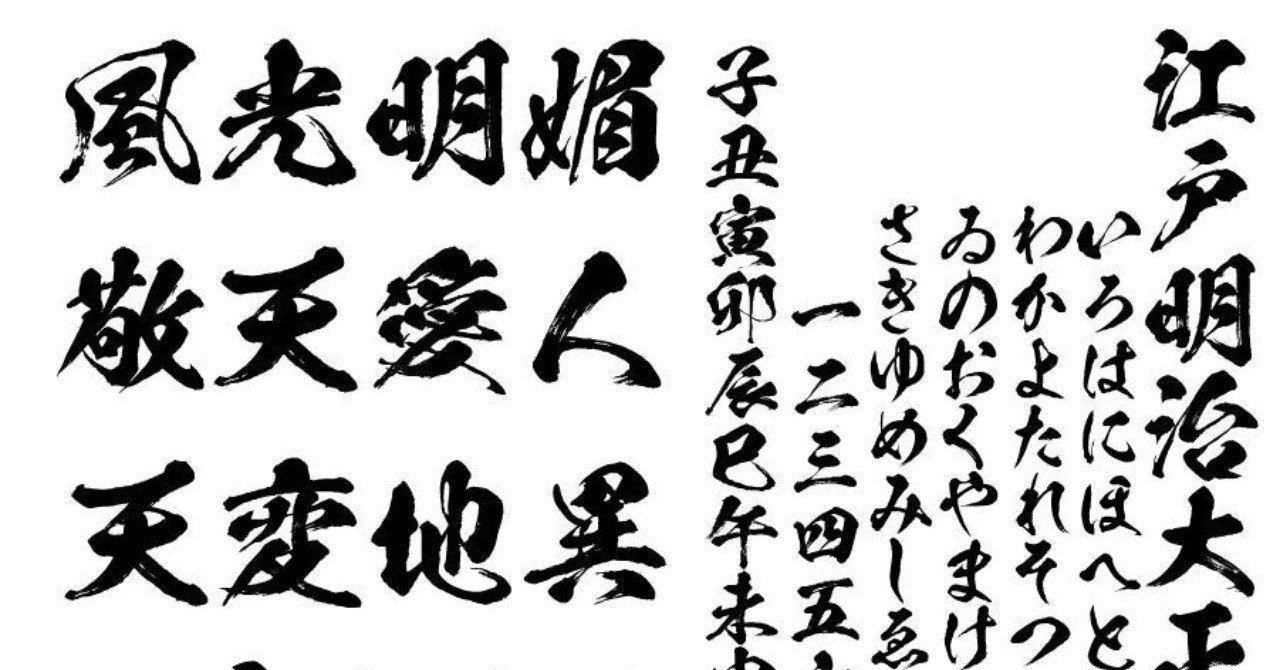 風光明媚
敬天愛人
天変地異
江戸明治大正
いろはにほへと
わかよたれそつ
ゐのおくやまけ
さきゆめみしゑ
一二三四五
子丑寅卯辰巳午未